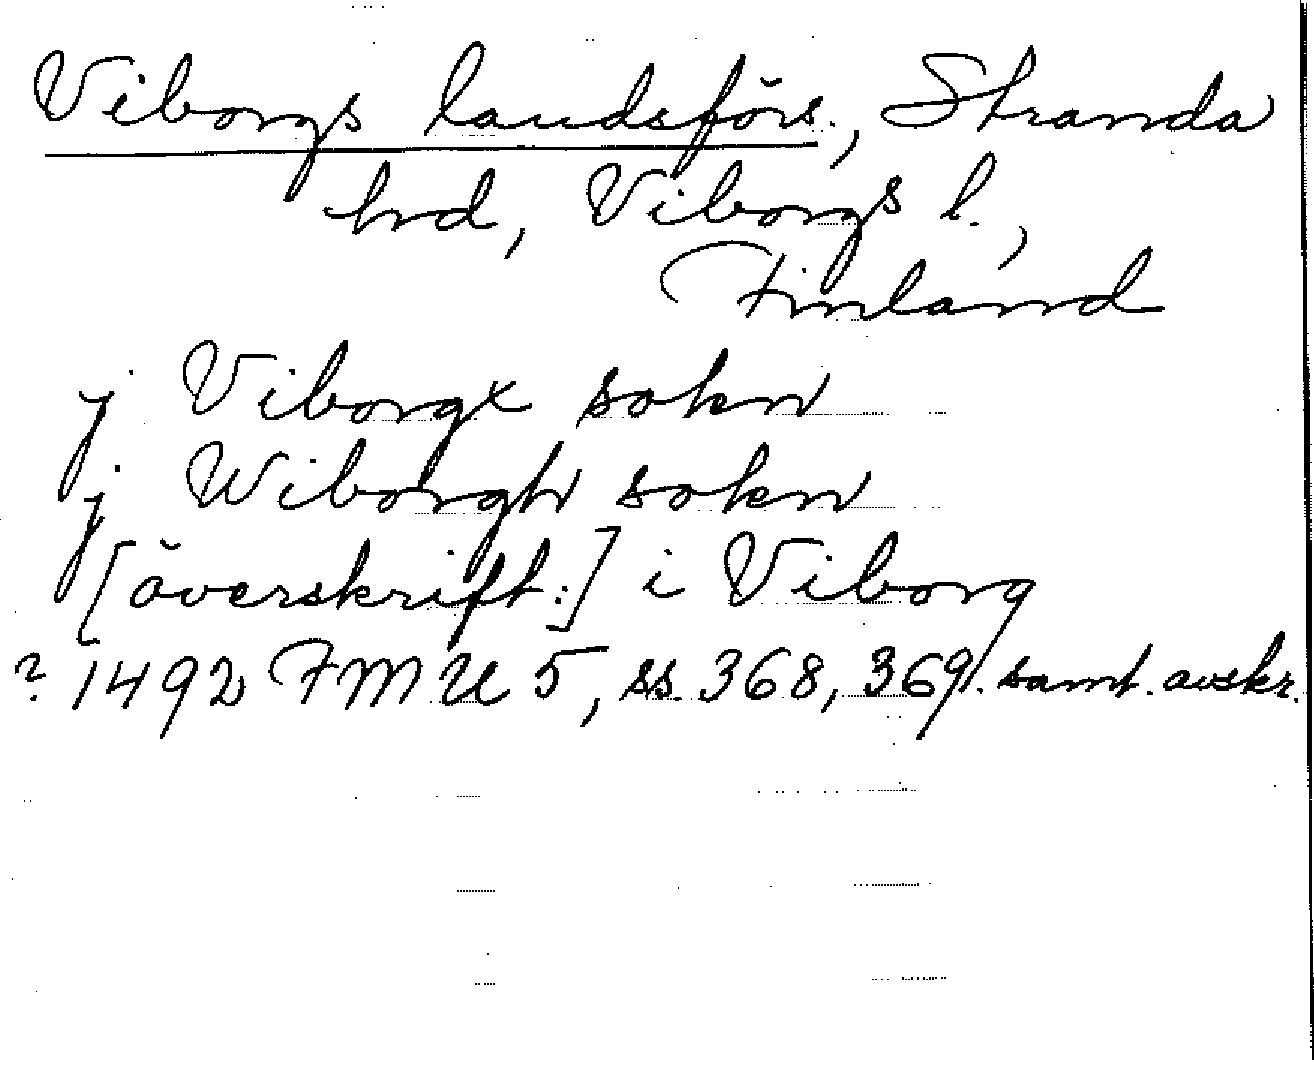 Viborgs landsförs., Stranda
hrd, Viborgs l.,
Finland
j Viborgx sokn
j Wiborgh sokn
[överskrift:] i Viborg
? 1492 FMU 5, ss. 368, 369. samt. avskr.